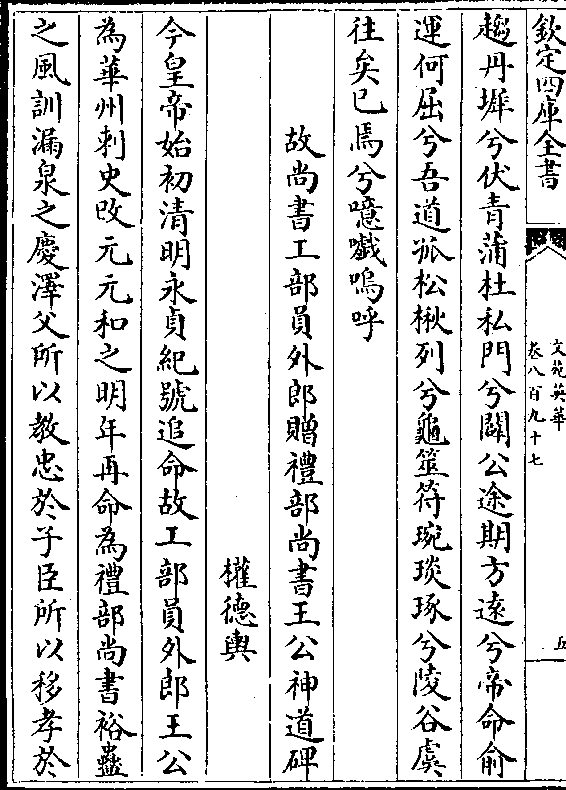 欽定四庫全書
文苑英華
卷八百九十七
五
趨丹墀兮伏青蒲杜私門兮闢公途期方遠兮帝命俞
運何屈兮吾道孤松楸列兮龜筮符琬琰琢兮陵谷虞
往矣已焉兮噫嚱嗚呼
故尚書工部員外郎贈禮部尚書王公神道碑
權德輿
今皇帝始初清明永貞紀號追命故工部員外郎王公
為華州刺史改元元和之明年再命為禮部尚書裕蠱
之風訓漏泉之慶澤父所以教忠於子臣所以移孝於